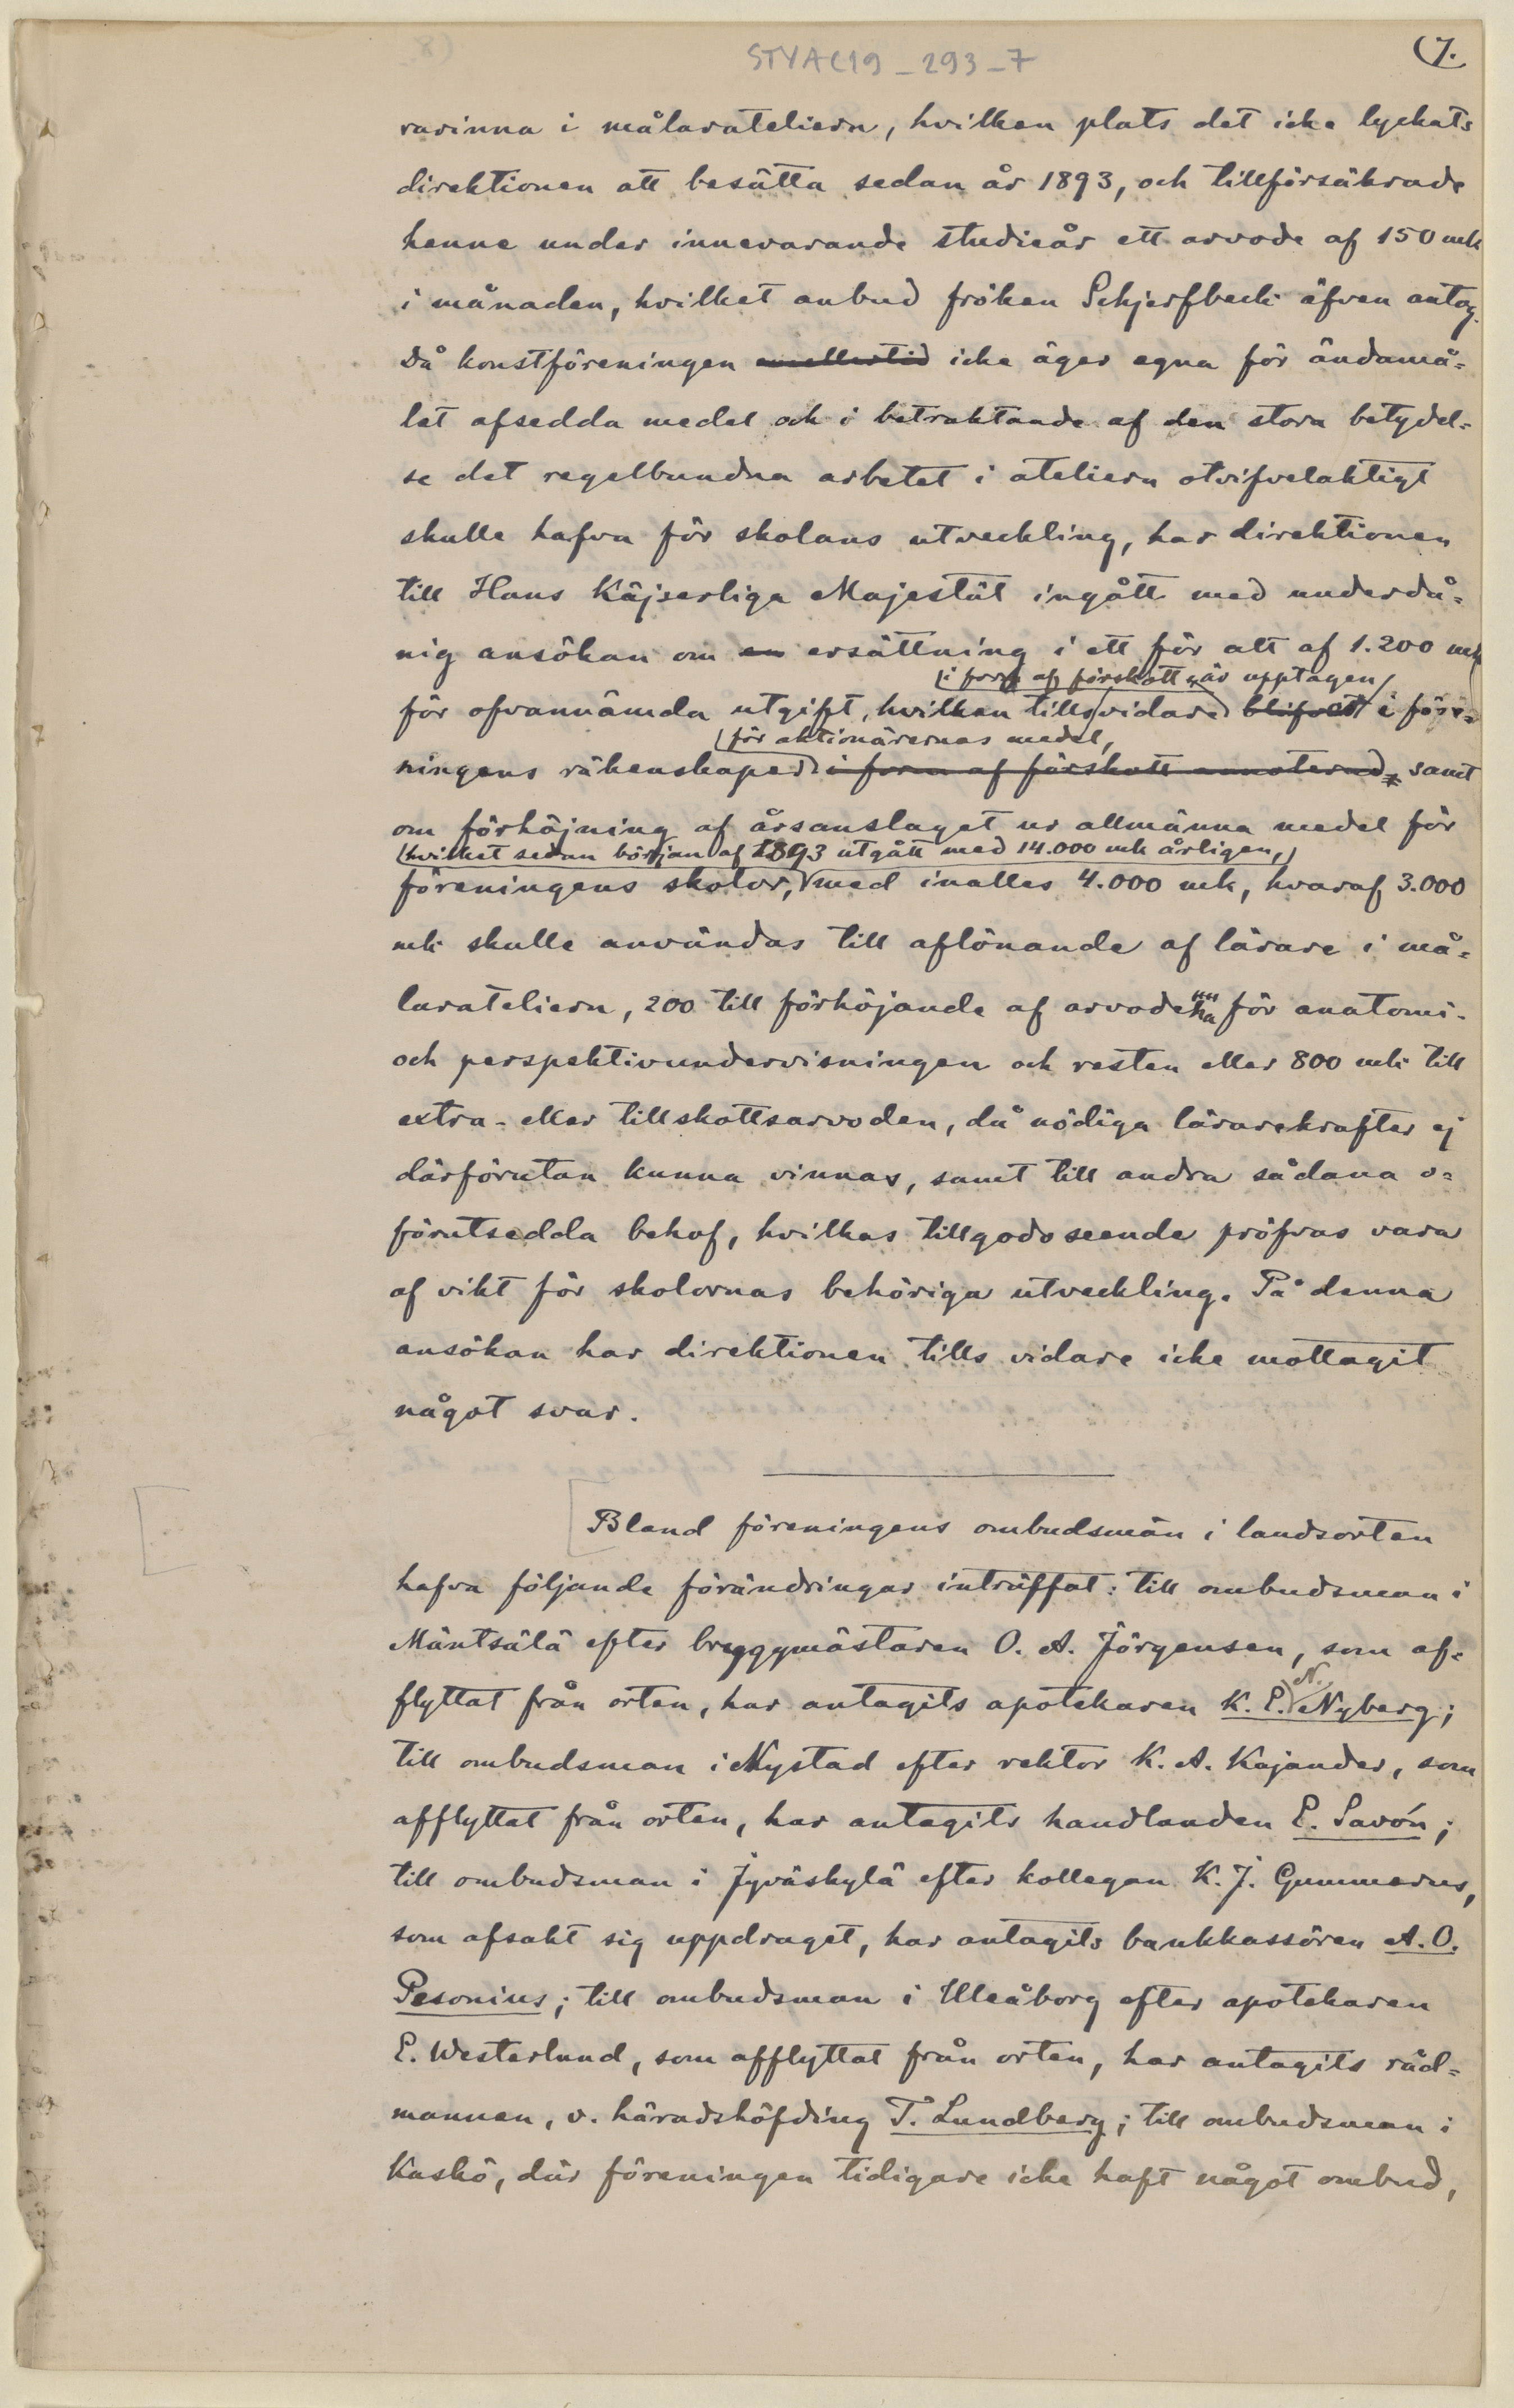 STYAC19_293_7
(7.
rarinna i målarateliern, hvilken plats det icke lyckats
direktionen att besätta sedan år 1893, och tillförsäkrade
henne under innevarande studieår ett arvode af 150 mk
i månaden, hvilket anbud fröken Schjerfbeck äfven antog.
Då konstföreningen emellertid icke äger egna för ändamå=
let afsedda medel och i betraktande af den stora betydel=
se det regelbundna arbetet i ateliern otvifvelaktigt
skulle hafva för skolans utveckling, har direktionen
till Hans Käjserliga Majestät ingått med underdå=
nig ansökan om en ersättning i ett för allt af 1.200 mk
i form af förskott är upptagen
för ofvannämda utgift, hvilken tillsvidare blifvit i före=
för aktionärernas medel,
ningens räkenskaper i form af förskott annoterad, samt
om förhöjning af årsanslaget ur allmänna medel för
hvilket sedan början af 1893 utgått med 14.000 mk årligen,
föreningens skolor, med inalles 4.000 mk, hvaraf 3.000
mk skulle användas till aflönande af lärare i må=
larateliern, 200 till förhöjande af arvodena för anatomi-
och perspektivundervisningen och resten eller 800 mk till
extra- eller tillskottsarvoden, då nödiga lärarekrafter ej
därförutan kunna vinnas, samt till andra sådana o=
förutsedda behof, hvilkas tillgodoseende pröfvas vara
af vikt för skolornas behöriga utveckling. På denna
ansökan har direktionen tills vidare icke mottagit
något svar.
Bland föreningens ombudsmän i landsorten
hafva följande förändringar inträffat: till ombudsman i
Mäntsälä efter bryggmästaren O. A. Jörgensen, som af=
flyttat från orten, har antagits apotekaren K. E. N. Nyberg;
till ombudsman i Nystad efter rektor K. A. Kajander, som
afflyttat från orten, har antagits handlanden E. Savón;
till ombudsman i Jyväskylä efter kollegan K. J. Gummerus,
som afsakt sig uppdraget, har antagits bankkassören A. O.
Pesonius; till ombudsman i Uleåborg efter apotekaren
E. Westerlund, som afflyttat från orten, har antagits råd=
mannen, v. häradshöfding T. Lundberg; till ombudsman i
Kaskö, där föreningen tidigare icke haft något ombud,